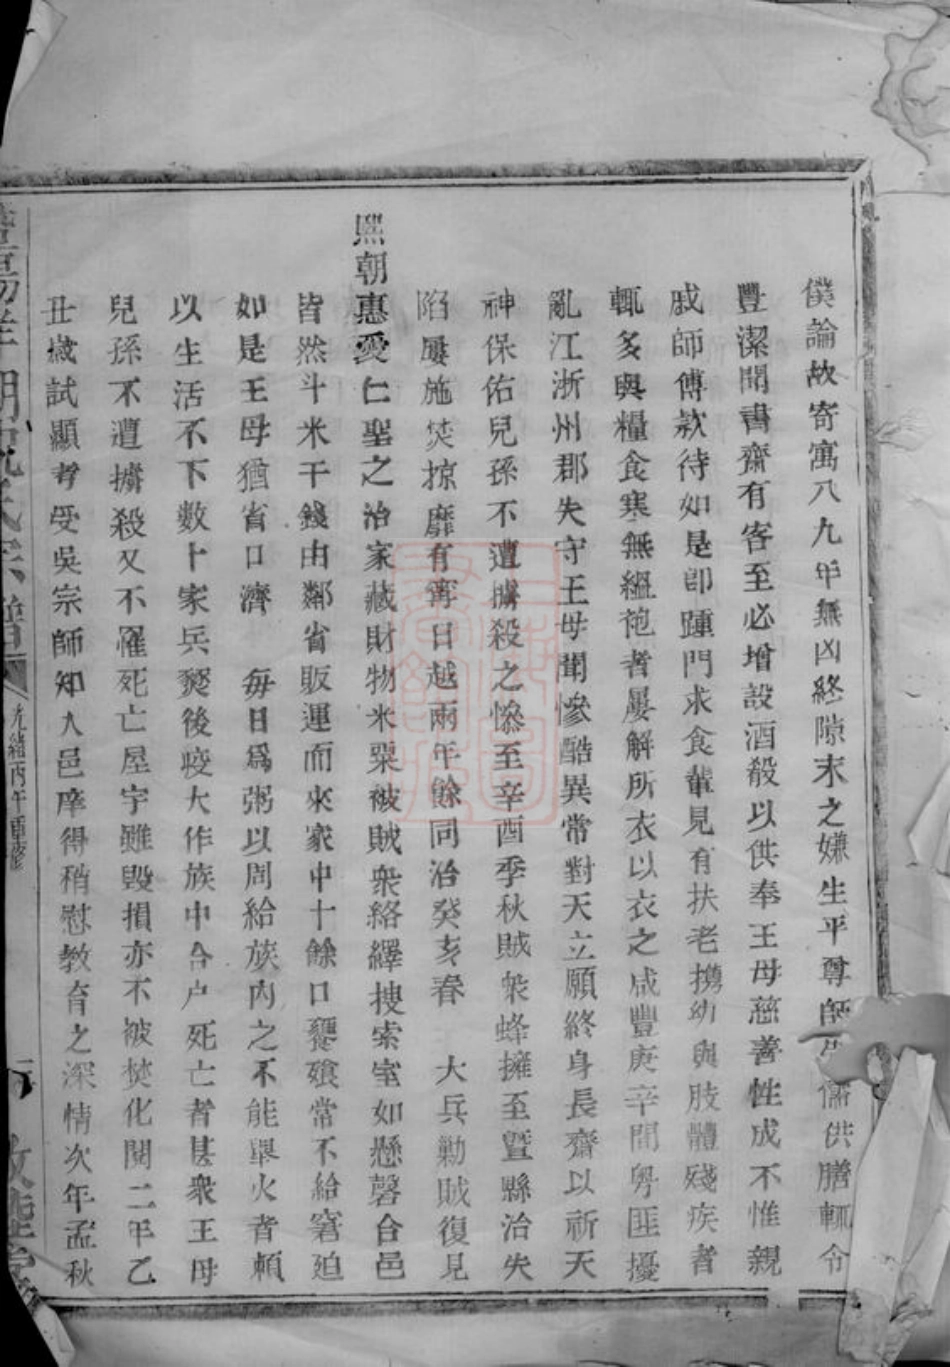 僕論故寄寓八九年無凶終隙末之嫌生平尊師儒供膳輒令
豐潔聞書齋有客至必增設酒殽以供奉王母慈善性成不惟親
戚師傅款待如是卽踵門求食輩見有扶老攜幼與肢體殘疾者
輒多與糧食寒無縕袍者屢解所衣以衣之咸豐庚辛間粵匪擾
亂江浙州郡失守王母聞慘酷異常對天立願終身長齋以祈天
神保佑兒孫不遭擄殺之慘至辛酉季秋賊衆蜂擁至暨縣治失
陷屢施焚掠靡有寧日越兩年餘同治癸亥春 大兵勦賊復見
熙朝惠愛仁聖之治家藏財物米粟被賊衆絡繹搜索室如懸磬合邑
皆然斗米千錢由鄰省販運而來家中十餘口饔飱常不給窘廹
如是王母猶省口濟 每日爲粥以周給族內之不能舉火者賴
以生活不下數十家兵燹後疫大作族中合户死亡者甚衆王母
兒孫不遭擄殺又不罹死亡屋宇雖毀損亦不被焚化閱二年乙
丑歲試顯考受吳宗師知入邑庠得稍慰教育之深情次年孟秋
光緒丙午重修